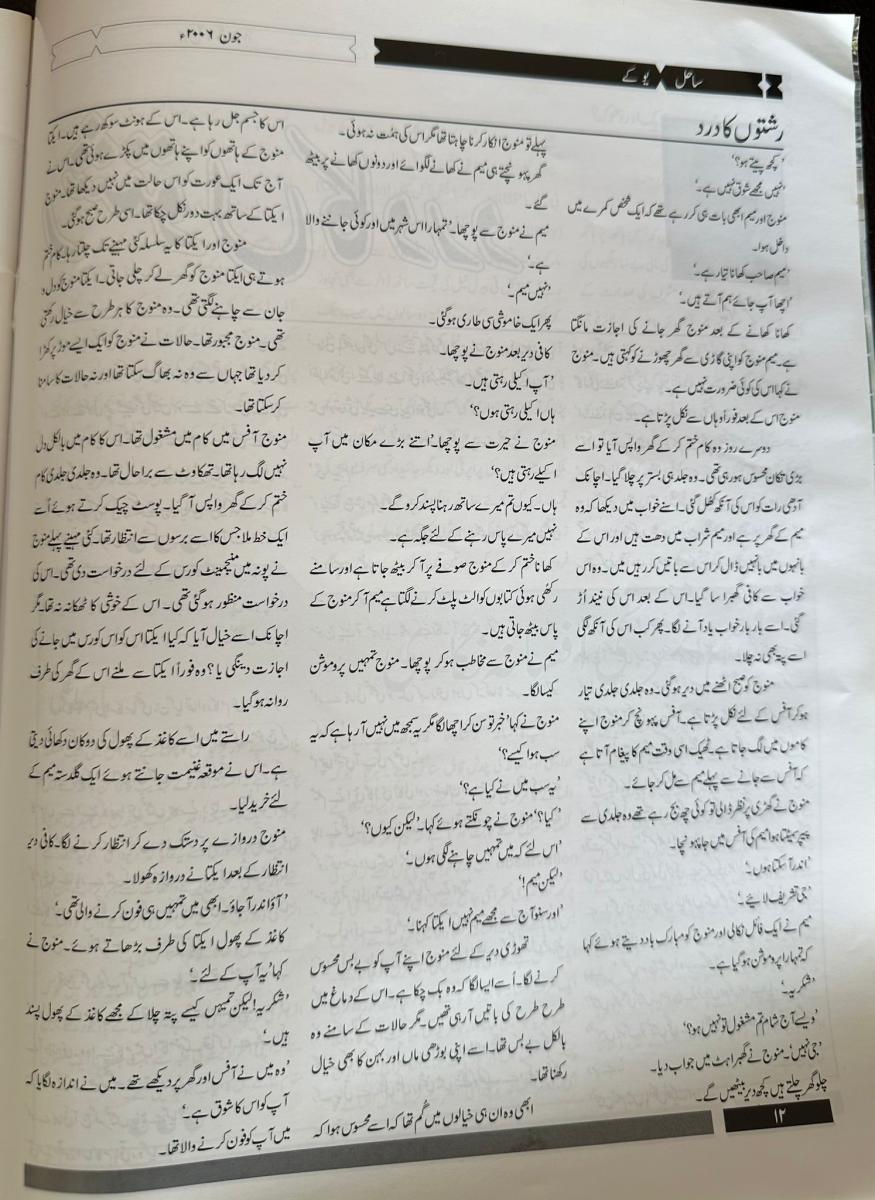 جون ۲۰۰۶ء
ساحل یو کے
رشتوں کا درد
’کچھ پیتے ہو؟‘
’نہیں مجھے شوق نہیں ہے۔‘
منوج اور میم ابھی بات ہی کر رہے تھے کہ ایک شخص کمرے میں
داخل ہوا۔
’میم صاحب کھانا تیار ہے۔‘
’اچھا آپ جائے ہم آتے ہیں۔‘
کھانا کھانے کے بعد منوج گھر جانے کی اجازت مانگتا
ہے۔ میم منوج کو اپنی گاڑی سے گھر چھوڑنے کو کہتی ہیں۔ منوج
نے کہا اس کی کوئی ضرورت نہیں ہے۔
منوج اس کے بعد فوراً وہاں سے نکل پڑتا ہے۔
دوسرے روز وہ کام ختم کر کے گھر واپس آیا تو اسے
بڑی تکان محسوس ہو رہی تھی۔ وہ جلد ہی بستر پر چلا گیا۔ اچانک
آدھی رات کو اس کی آنکھ کھل گئی۔ اسنے خواب میں دیکھا کہ وہ
میم کے گھر پر ہے اور میم شراب میں دھت ہیں اور اس کے
بانہوں میں بانہیں ڈال کر اس سے باتیں کر رہیں میں۔ وہ اس
خواب سے کافی گھبرا سا گیا۔ اس کے بعد اس کی نیند اُڑ
گئی۔ اسے بار بار خواب یاد آنے لگا۔ پھر کب اس کی آنکھ لگی
اسے پتہ بھی نہ چلا۔
منوج کو صبح اٹھنے میں دیر ہو گئی۔ وہ جلدی جلدی تیار
ہو کر آفس کے لئے نکل پڑتا ہے۔ آفس پہونچ کر منوج اپنے
کاموں میں لگ جاتا ہے۔ ٹھیک اسی وقت میم کا پیغام آتا ہے
کہ آفس سے جانے سے پہلے میم سے مل کر جائے۔
منوج نے گھڑی پر نظر ڈالی تو کوئی چھ بج رہے تھے وہ جلدی سے
پیپر سمیٹتا ہوا میم کی آفس میں جا پہونچا۔
’اندر آ سکتا ہوں۔‘
’جی تشریف لائیے۔‘
میم نے ایک فائل نکالی اور منوج کو مبارک باد دیتے ہوئے کہا
کہ تمہارا پروموشن ہو گیا ہے۔
’شکریہ۔‘
’ویسے آج شام تم مشغول تو نہیں ہو؟‘
’جی نہیں‘۔ منوج نے گھبراہٹ میں جواب دیا۔
چلو گھر چلتے ہیں کچھ دیر بیٹھیں گے۔
پہلے تو منوج انکار کرنا چاہتا تھا مگر اس کی ہمّت نہ ہوئی۔
گھر پہونچتے ہی میم نے کھانے لگوائے اور دونوں کھانے پر بیٹھ
گئے۔
میم نے منوج سے پوچھا۔ ’تمہارا اس شہر میں اور کوئی جاننے والا
ہے۔‘
’نہیں میم۔‘
پھر ایک خاموشی سی طاری ہو گئی۔
کافی دیر بعد منوج نے پوچھا۔
’آپ اکیلی رہتی ہیں۔
ہاں اکیلی رہتی ہوں؟‘
منوج نے حیرت سے پوچھا۔ ’اتنے بڑے مکان میں آپ
اکیلے رہتی ہیں؟‘
ہاں۔ کیوں تم میرے ساتھ رہنا پسند کروگے۔
نہیں میرے پاس رہنے کے لئے جگہ ہے۔
کھانا ختم کر کے منوج صوفے پر آ کر بیٹھ جاتا ہے اور سامنے
رکھی ہوئی کتابوں کو الٹ پلٹ کرنے لگتا ہے میم آ کر منوج کے
پاس بیٹھ جاتی ہیں۔
میم نے منوج سے مخاطب ہو کر پوچھا۔ منوج تمہیں پروموشن
کیسا لگا۔
منوج نے کہا ’خبر تو سن کر اچھا لگا مگر یہ سمجھ میں نہیں آ رہا ہے کہ یہ
سب ہوا کیسے؟‘
’یہ سب میں نے کیا ہے؟‘
’کیا؟‘ منوج نے چونکتے ہوئے کہا۔ ’لیکن کیوں؟‘
’اس لئے کہ میں تمہیں چاہنے لگی ہوں۔‘
’لیکن میم!‘
’اور سنو آج سے مجھے میم نہیں ایکتا کہنا۔‘
تھوڑی دیر کے لئے منوج اپنے آپ کو بے بس محسوس
کرنے لگا۔ اُسے ایسا لگا کہ وہ بک چکا ہے۔ اس کے دماغ میں
طرح طرح کی باتیں آ رہی تھیں۔ مگر حالات کے سامنے وہ
بالکل بے بس تھا۔ اسے اپنی بوڑھی ماں اور بہن کا بھی خیال
رکھنا تھا۔
ابھی وہ ان ہی خیالوں میں گُم تھا کہ اسے محسوس ہوا کہ
اس کا جسم جل رہا ہے۔ اس کے ہونٹ سوکھ رہے ہیں۔ ایکتا
منوج کے ہاتھوں کو اپنے ہاتھوں میں پکڑے ہوئی تھی۔ اس نے
آج تک ایک عورت کو اس حالت میں نہیں دیکھا تھا۔ منوج
ایکتا کے ساتھ بہت دور نکل چکا تھا۔ اسی طرح صبح ہو گئی۔
منوج اور ایکتا کا یہ سلسلہ کئی مہینے تک چلتا رہا۔ کام ختم
ہوتے ہی ایکتا منوج کو گھر لے کر چلی جاتی۔ ایکتا منوج کو دل و
جان سے چاہنے لگتی تھی۔ وہ منوج کا ہر طرح سے خیال رکھتی
تھی۔ منوج مجبور تھا۔ حالات نے منوج کو ایک ایسے موڑ پر کھڑا
کر دیا تھا جہاں سے وہ نہ بھاگ سکتا تھا اور نہ حالات کا سامنا
کر سکتا تھا۔
منوج آفس میں کام میں مشغول تھا۔ اس کا کام میں بالکل دل
نہیں لگ رہا تھا۔ تھکاوٹ سے برا حال تھا۔ وہ جلدی جلدی کام
ختم کر کے گھر واپس آ گیا۔ پوسٹ چیک کرتے ہوئے اُسے
ایک خط ملا جس کا اسے برسوں سے انتظار تھا۔ کئی مہینے پہلے منوج
نے پونہ میں مینجمینٹ کورس کے لئے درخواست دی تھی۔ اس کی
درخواست منظور ہو گئی تھی۔ اس کے خوشی کا ٹھکانہ نہ تھا۔ مگر
اچانک اسے خیال آیا کہ کیا ایکتا اس کو اس کورس میں جانے کی
اجازت دینگی یا؟ وہ فوراً ایکتا سے ملنے اس کے گھر کی طرف
روانہ ہو گیا۔
راستے میں اسے کاغذ کے پھول کی دوکان دکھائی دیتی
ہے۔ اس نے موقعہ غنیمت جانتے ہوئے ایک گلدستہ میم کے
لئے خرید لیا۔
منوج دروازے پر دستک دے کر انتظار کرنے لگا۔ کافی دیر
انتظار کے بعد ایکتا نے دروازہ کھولا۔
’آؤ اندر آ جاؤ۔ ابھی میں تمہیں ہی فون کرنے والی تھی۔‘
کاغذ کے پھول ایکتا کی طرف بڑھاتے ہوئے۔ منوج نے
کہا ’یہ آپ کے لئے۔‘
’شکریہ! لیکن تمہیں کیسے پتہ چلا کے مجھے کاغذ کے پھول پسند
ہیں۔‘
’وہ میں نے آفس اور گھر پر دیکھے تھے۔ میں نے اندازہ لگایا کہ
آپ کو اس کا شوق ہے۔‘
میں آپ کو فون کرنے والا تھا۔
۱۲